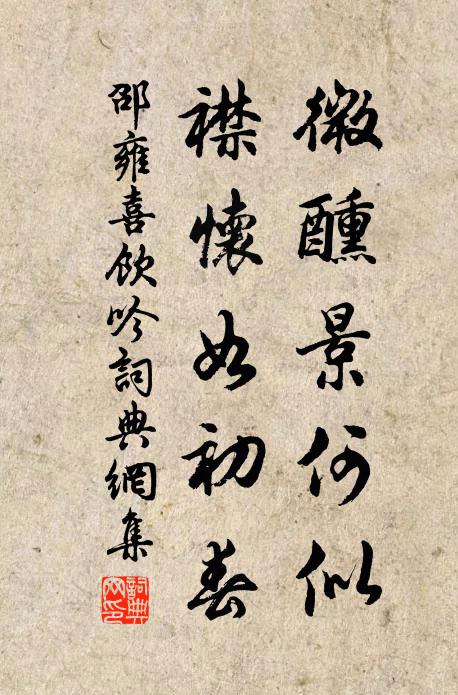 微醺景何似
襟懷如初春
邵雍喜飲吟詞典網集
詞典
网印